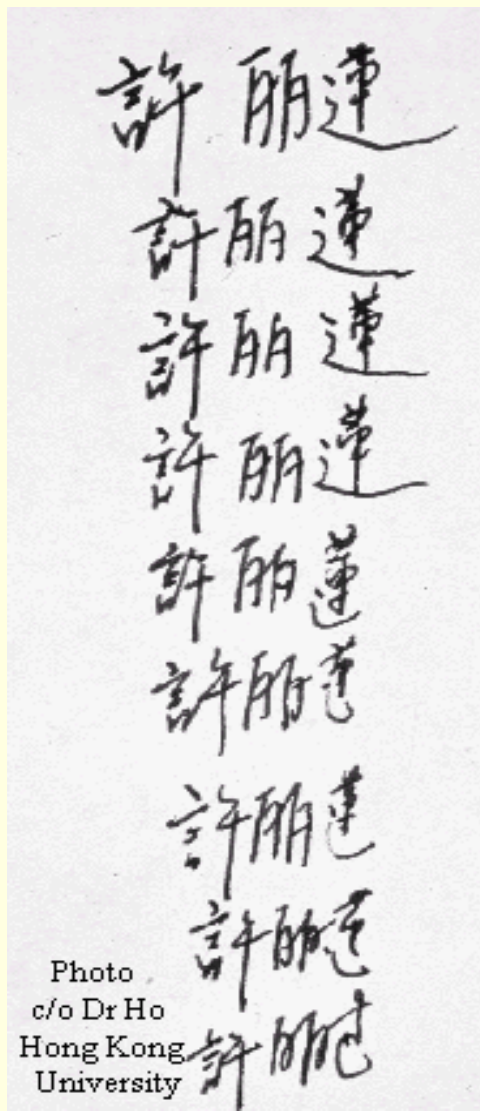 許 丽 蓮
許 丽 蓮
許 丽 蓮
許 丽 蓮
許 丽 蓮
許 丽 蓮
許 丽 蓮
許 丽 蓮
許 丽 蓮
Photo
c/o Dr Ho
Hong Kong
University